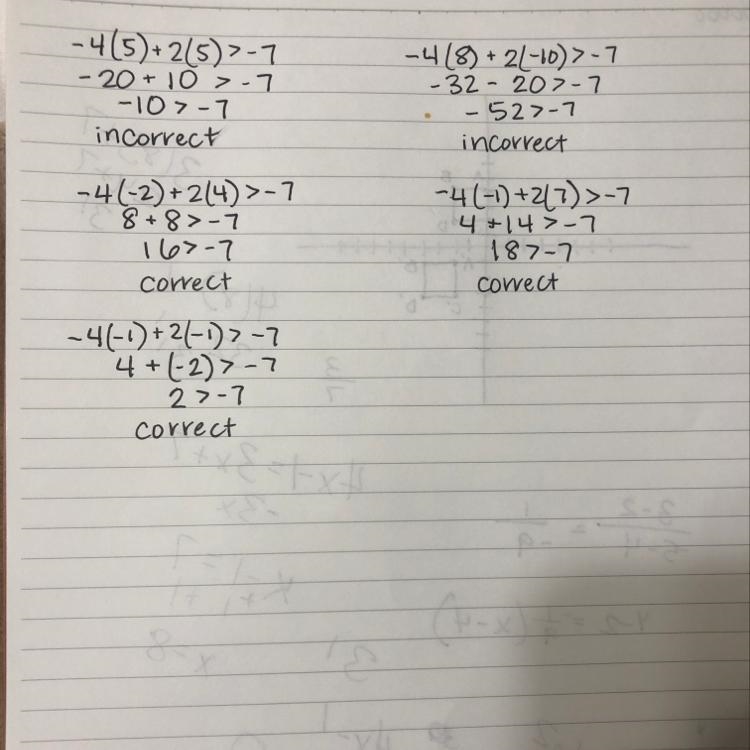 -4(5)+2(5)>-7
-20+10 >-7
-10>-7
incorrect
-4(8)+2(-10)>-7
-32-20>-7
-52>-7
incorrect
-4(-2)+2(4)>-7
8+8>-7
16>-7
correct
-4(-1)+2(7)>-7
4+14>-7
18>-7
correct
-4(-1)+2(-1)>-7
4+(-2)>-7
2>-7
correct